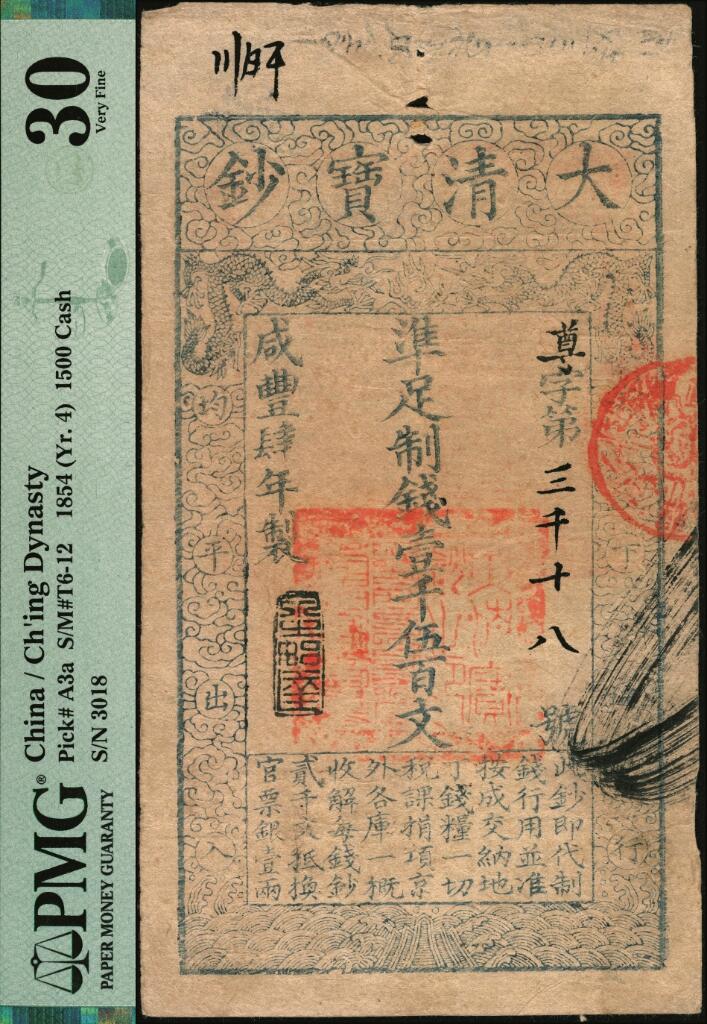 30
Very Fine
China / Ch'ing Dynasty
Pick# A3a S/M#T6-12 1854 (Yr. 4) 1500 Cash
S/N 3018
PMG®
PAPER MONEY GUARANTY
大清寶鈔
尊字第三千十八號
準足制錢壹千伍百文
咸豐肆年製
下
行
均
平
出
入
此鈔即代制
錢行用並准
按成交納地
丁錢糧一切
稅課捐項京
外各庫一概
收解每錢鈔
貳千文抵換
官票銀壹兩